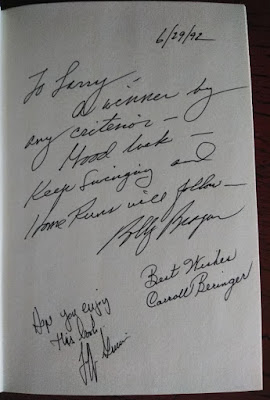 6/29/92
To Larry,
a winner by
any criterion —
Good luck —
Keep Swinging and
Home Runs will follow —
Best Wishes
Carroll Beringer
Hope you enjoy
this book